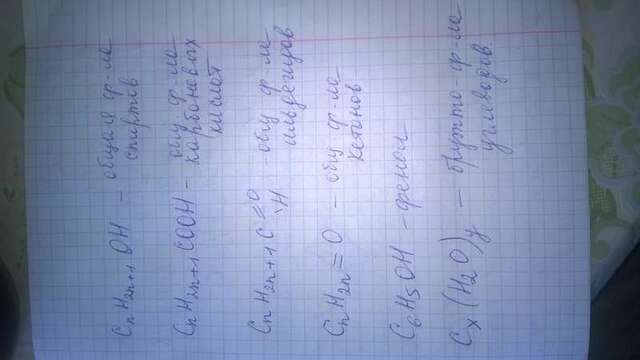 CnH2n+1OH – общая ф-ла
спиртов
CnH2n+1COOH – общ ф-ла
карбоновых
кислот
CnH2n+1C=O
\H – общ ф-ла
альдегидов
CnH2n=O – общ ф-ла
кетонов
C6H5OH – фенол
Cx(H2O)y – брутто ф-ла
углеводов.